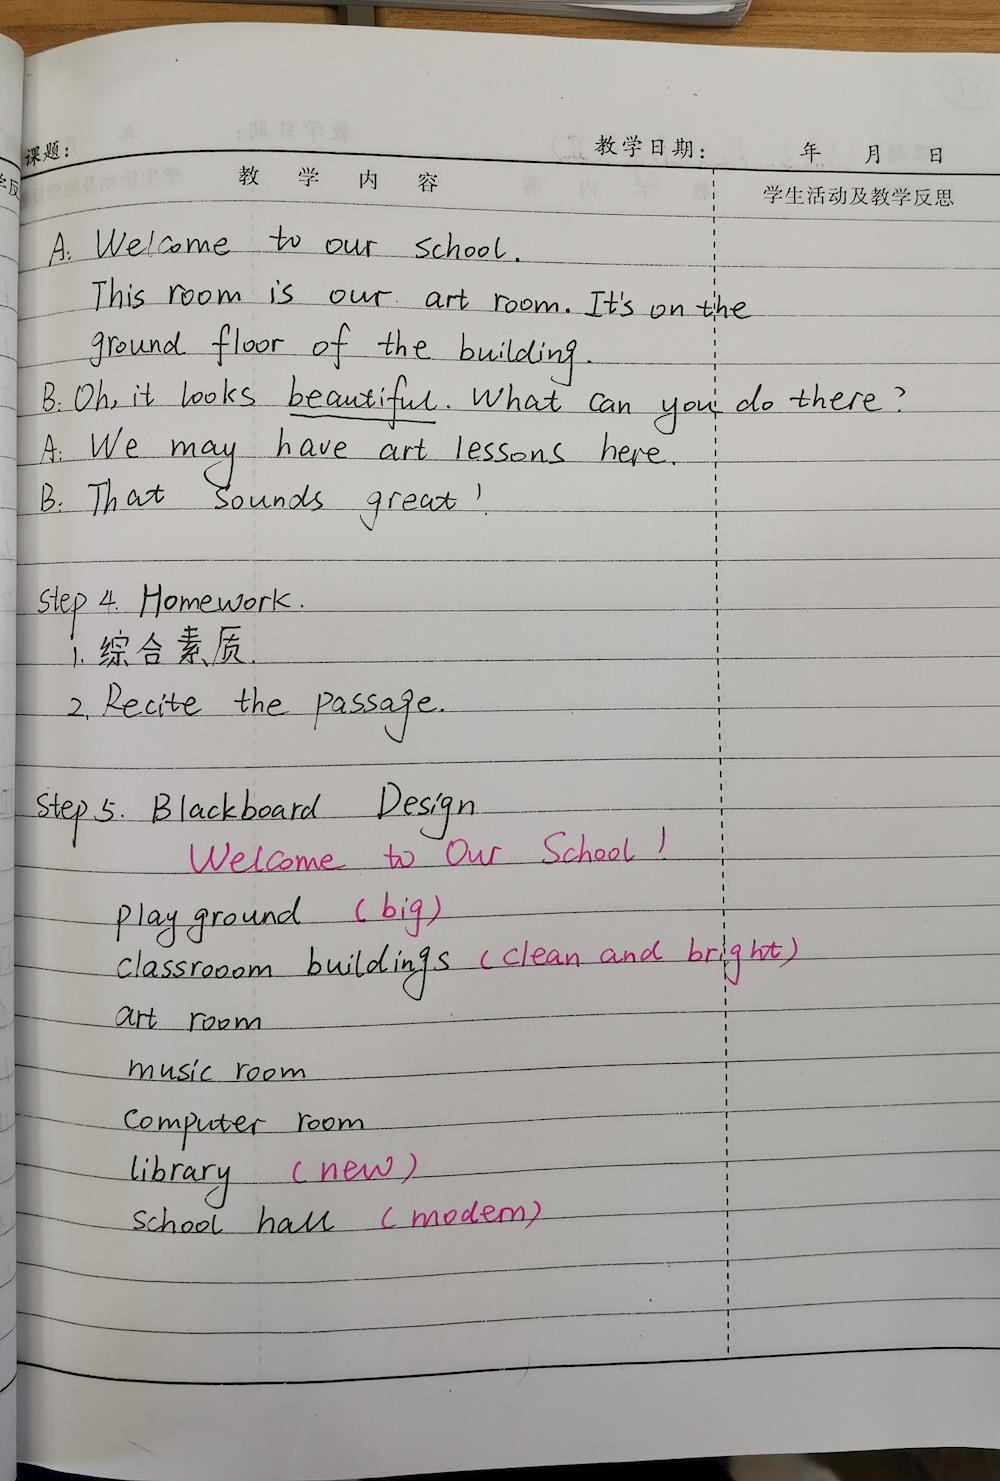 课题: 教学日期: 年 月 日
教 学 内 容 学生活动及教学反思
A: Welcome to our school.
This room is our art room. It's on the
ground floor of the building.
B: Oh, it looks beautiful. What can you do there?
A: We may have art lessons here.
B: That sounds great!
Step 4. Homework.
1. 综合素质.
2. Recite the passage.
Step 5. Blackboard Design
Welcome to Our School!
playground (big)
classrooom buildings (clean and bright)
art room
music room
computer room
library (new)
school hall (modern)